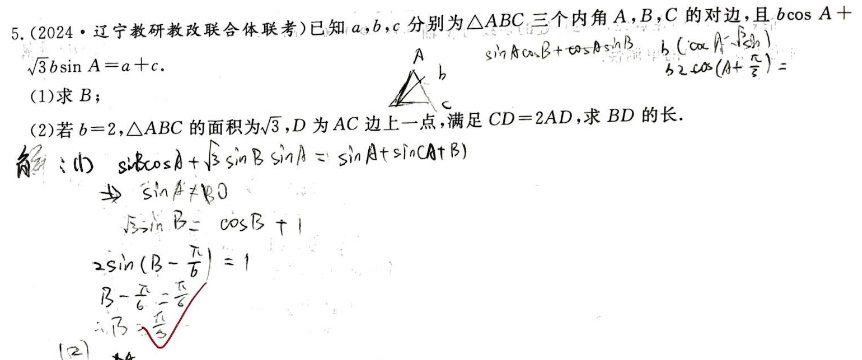 5.(2024·辽宁教研教改联合体联考)已知 a,b,c 分别为△ABC 三个内角 A,B,C 的对边,且 bcos A+
√3bsin A=a+c.
sinAcosB+cosAsinB
b(cosA-√3sin)
b2cos(A+π/3)=
(1)求 B;
A
b
C
(2)若 b=2,△ABC 的面积为√3,D 为 AC 边上一点,满足 CD=2AD,求 BD 的长.
:(1) sinBcosA+√3sinBsinA=sinA+sin(A+B)
⇒ sinA≠0
√3sinB=cosB+1
2sin(B-π/6)=1
B-π/6=π/6
∴B=π/3
(2)